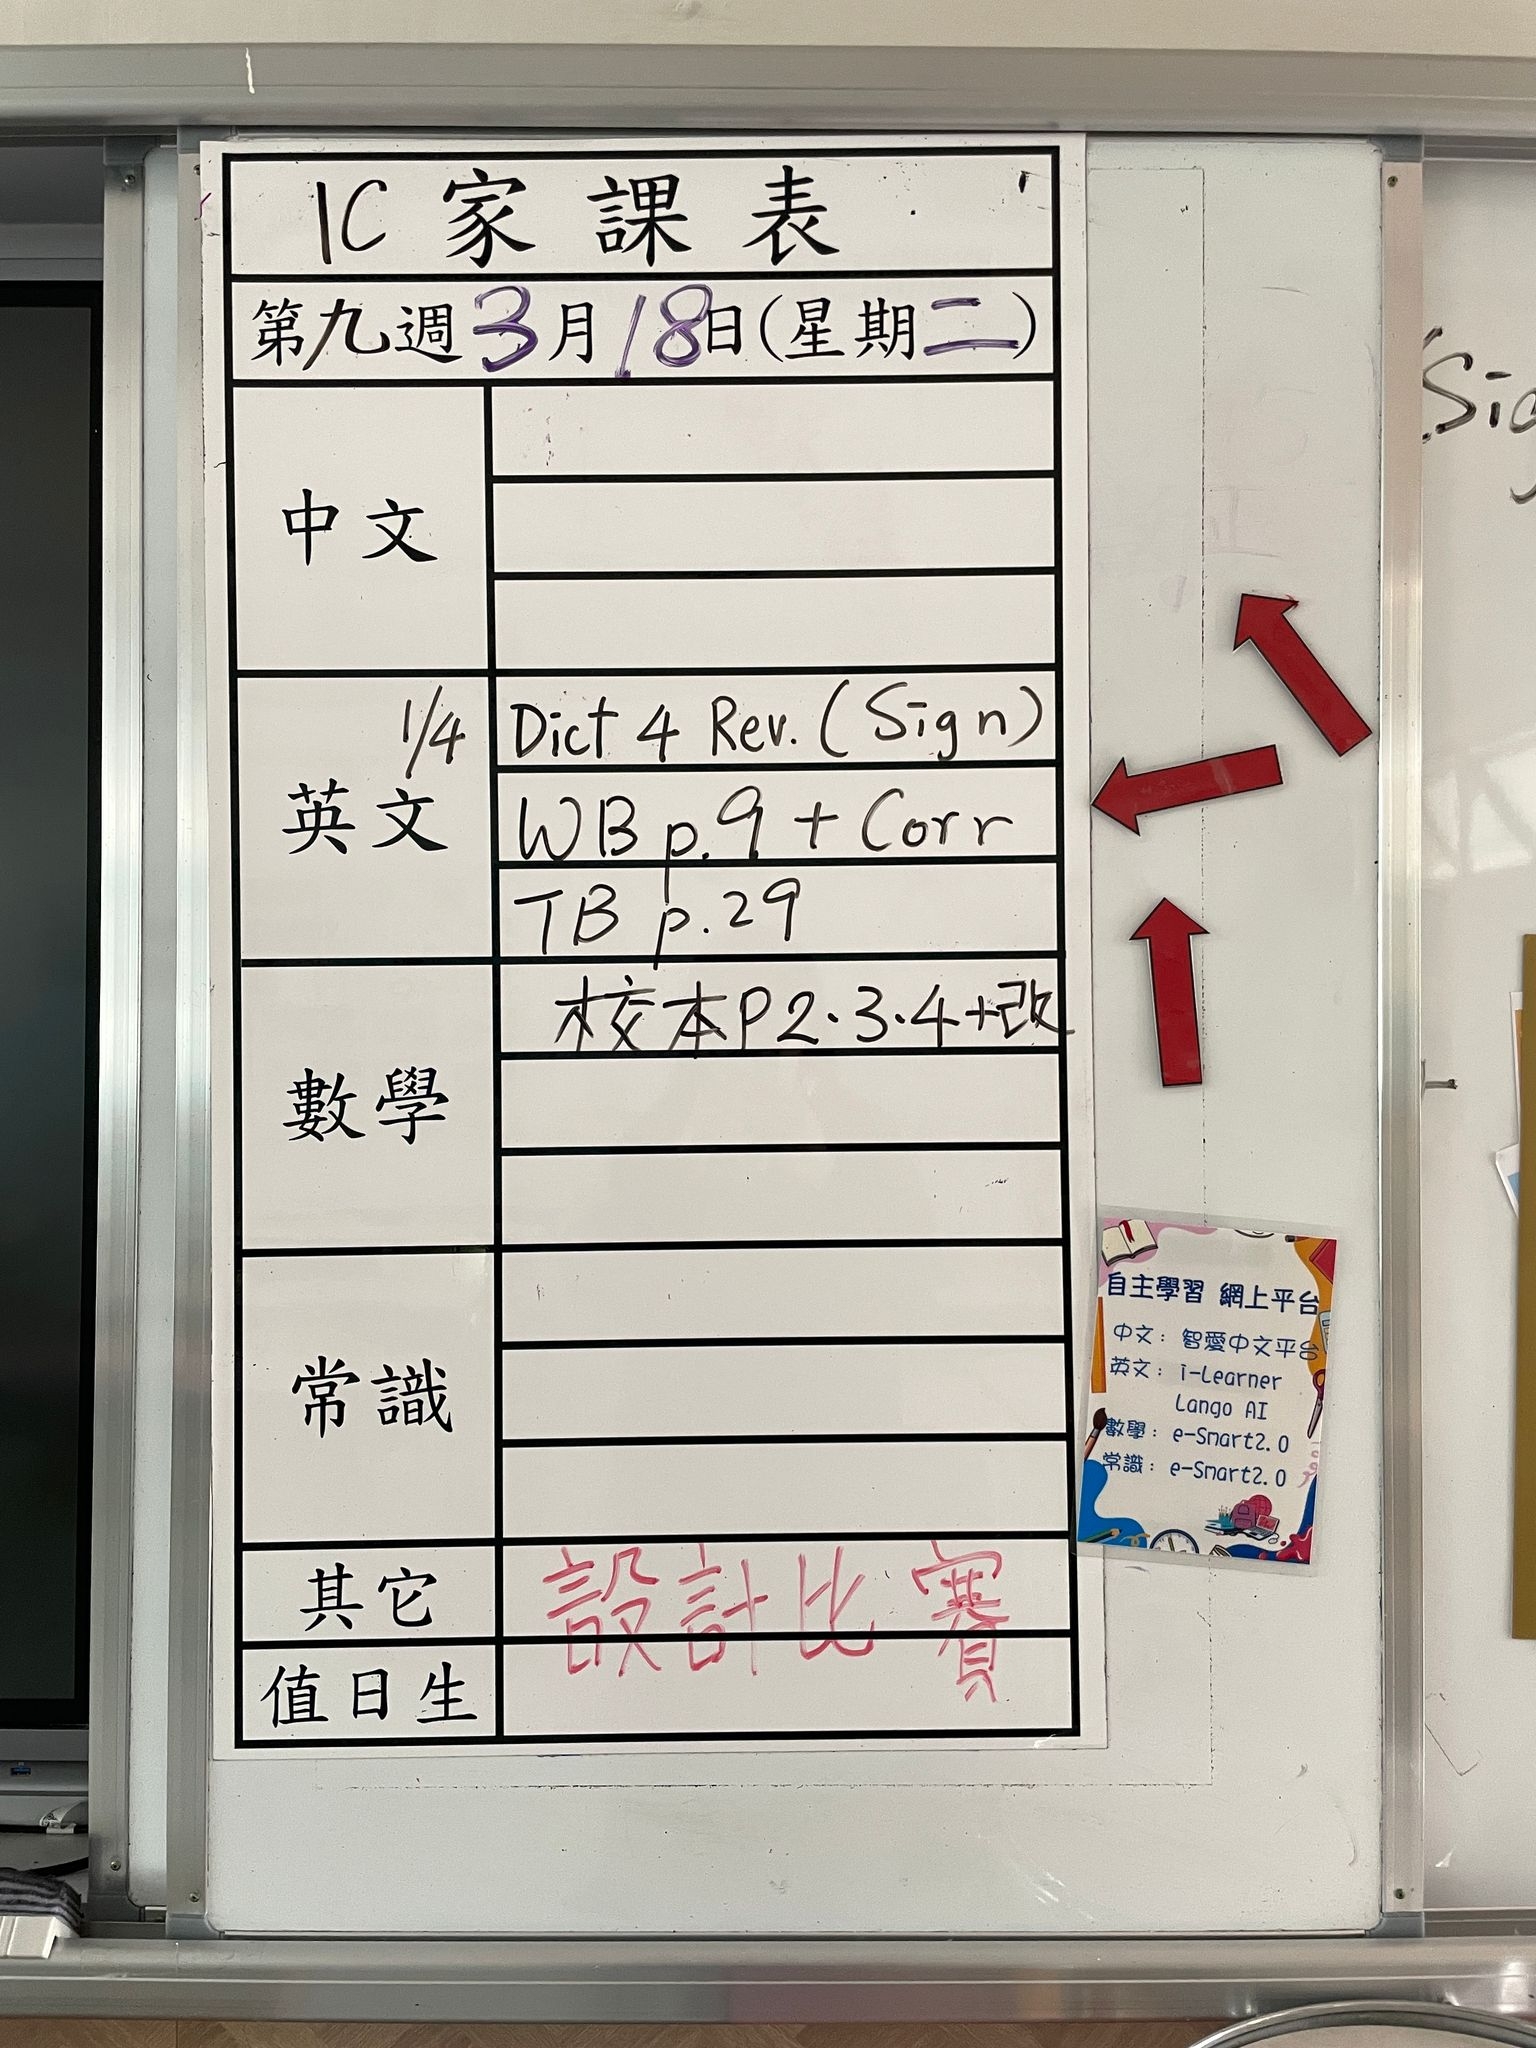 1C 家課表
第九週3月18日(星期二)
中文
英文
1/4 Dict 4 Rev. (Sign)
WB p.9 + Corr
TB p.29
數學
校本P2.3.4+改
常識
其它
設計比賽
值日生
Sig
自主學習 網上平台
中文: 智愛中文平台
英文: i-Learner
Lango AI
數學: e-Smart2.0
常識: e-Smart2.0